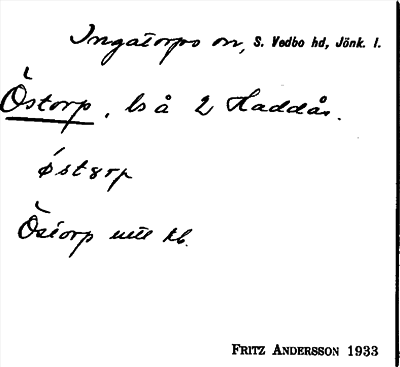 Ingatorps sn, S. Vedbo hd, Jönk. l.
Östorp, ls å 2 Haddås.
østørp
Östorp utt kb.
FRITZ ANDERSSON 1933